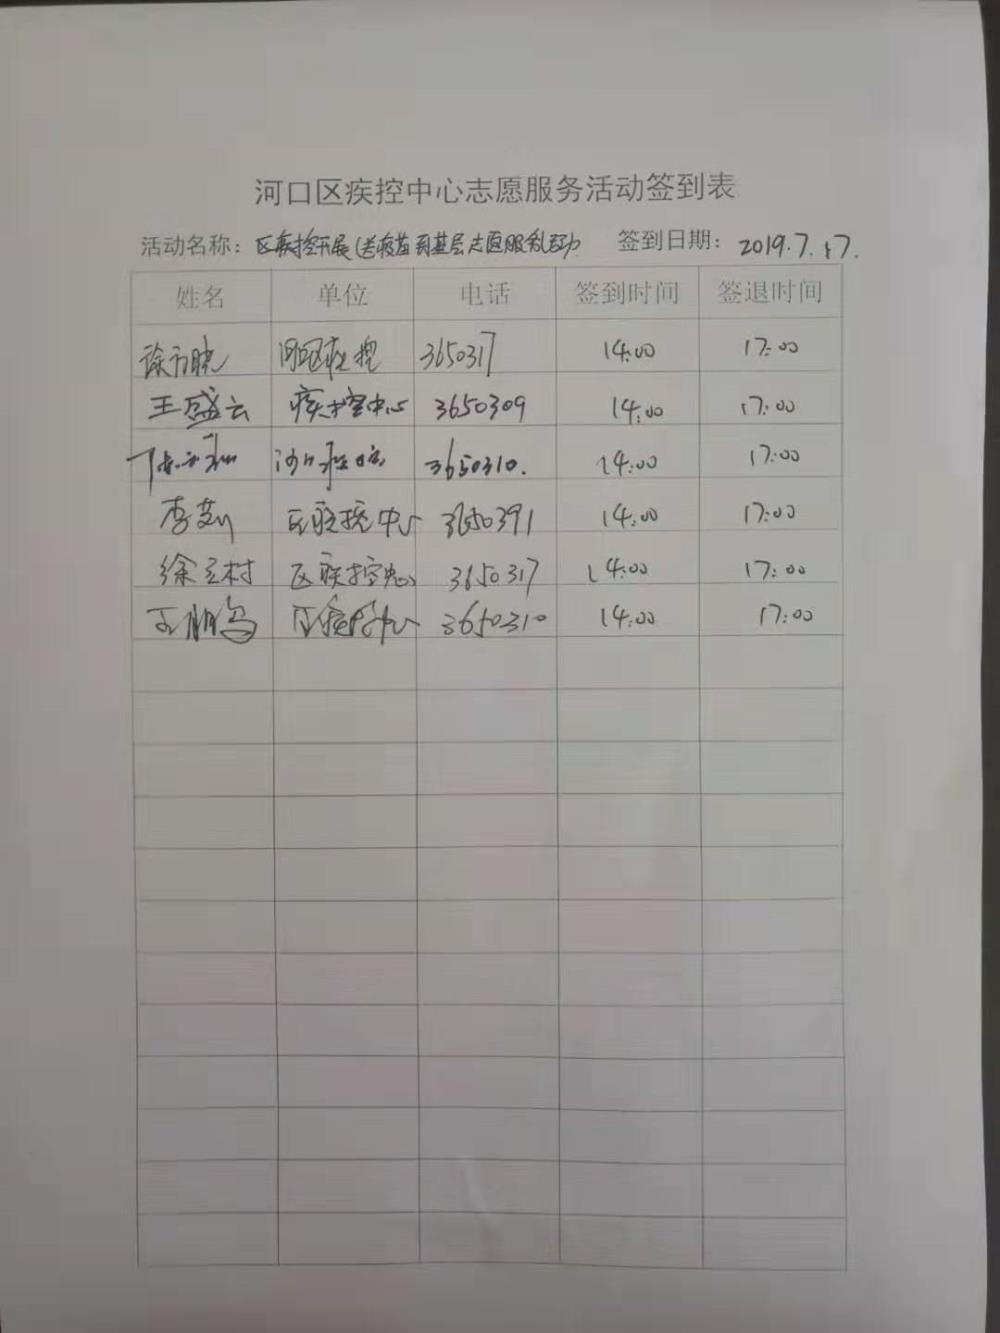 河口区疾控中心志愿服务活动签到表
活动名称: 区疾控开展《送疫苗到基层志愿服务活动 签到日期: 2019.7.17.
姓名 单位 电话 签到时间 签退时间
河口区疾控 3650317 14:00 17:00
王盛云 疾控中心 3650309 14:00 17:00
3650310. 14:00 17:00
李 区疾控中心 3650391 14:00 17:00
徐立村 区疾控中心 3650317 14:00 17:00
王鹏 区疾控中心 3650310 14:00 17:00